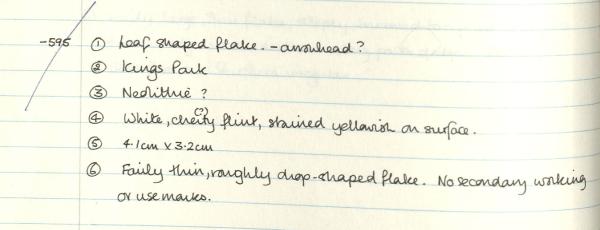 -595 ① Leaf shaped flake. - arrowhead?
② Kings Park
③ Neolithic ?
④ White, cherty (?) flint, stained yellowish on surface.
⑤ 4.1cm x 3.2cm
⑥ Faily thin, roughly drop-shaped flake. No secondary working
or use marks.